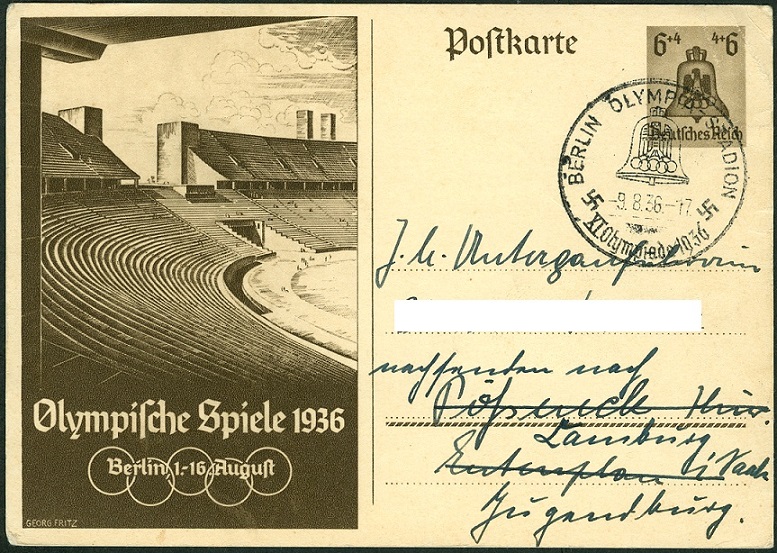 Postkarte
6+4 4+6
Deutsches Reich
BERLIN OLYMPIA-STADION
-9.8.36.-17
XI. Olympiade 1936
Olympische Spiele 1936
Berlin 1.-16. August
GEORG FRITZ
J. h. Untergauführerin
nachsenden nach
Pößneck Thür.
Camburg
i/Saale
Jugendburg.